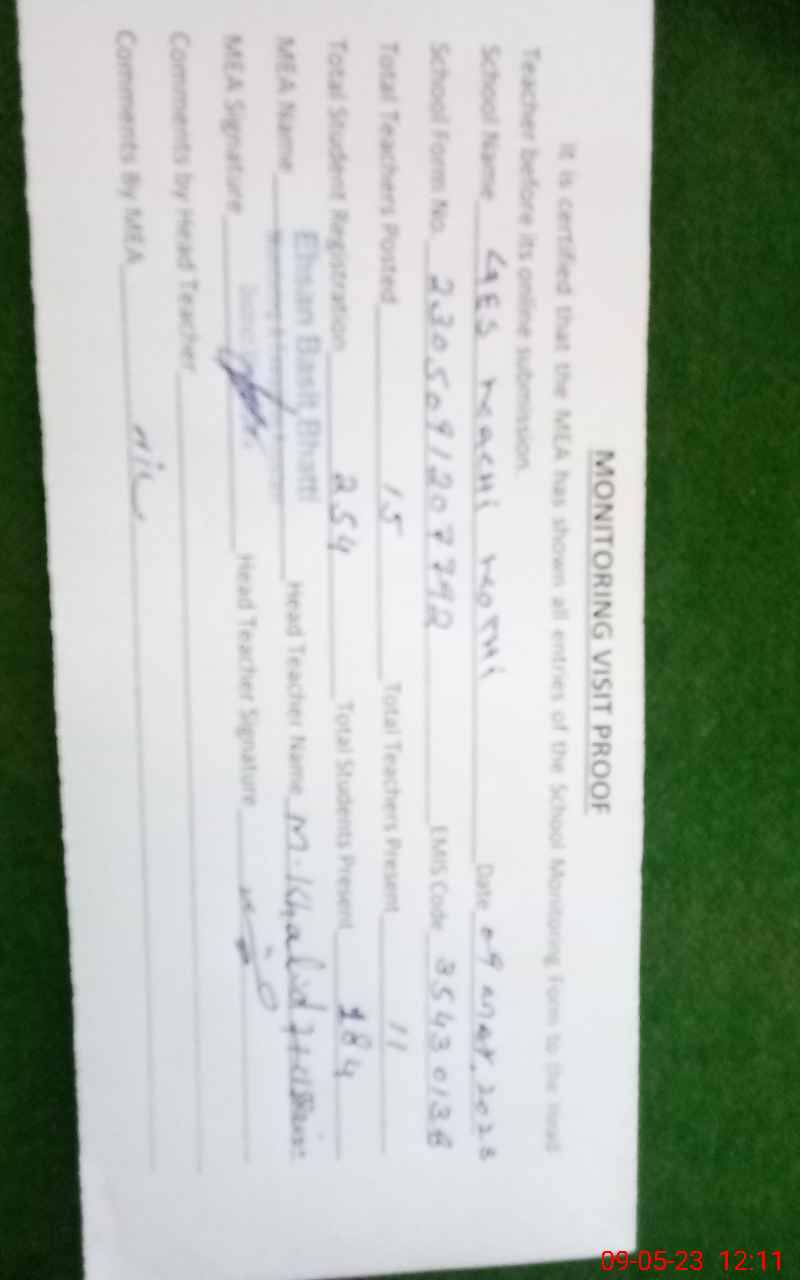 MONITORING VISIT PROOF
It is certified that the MEA has shown all entries of the School Monitoring Form to the Head
Teacher before its online submission.
School Name GES MACHI MOTHI Date 09 MAY, 2023
School Form No. 230509120 EMIS Code 3543013
Total Teachers Posted 15 Total Teachers Present 11
Total Student Registration 254 Total Students Present 184
MEA Name Ehsan Basit Bhatti Head Teacher Name M. Khalid
MEA Signature Head Teacher Signature
Comments by Head Teacher
Comments By MEA nil
09-05-23 12:11